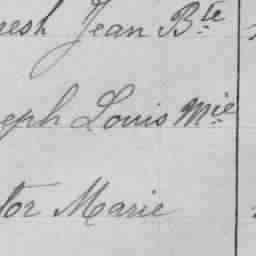 Jean Bte
eph Louis Mie
tor Marie